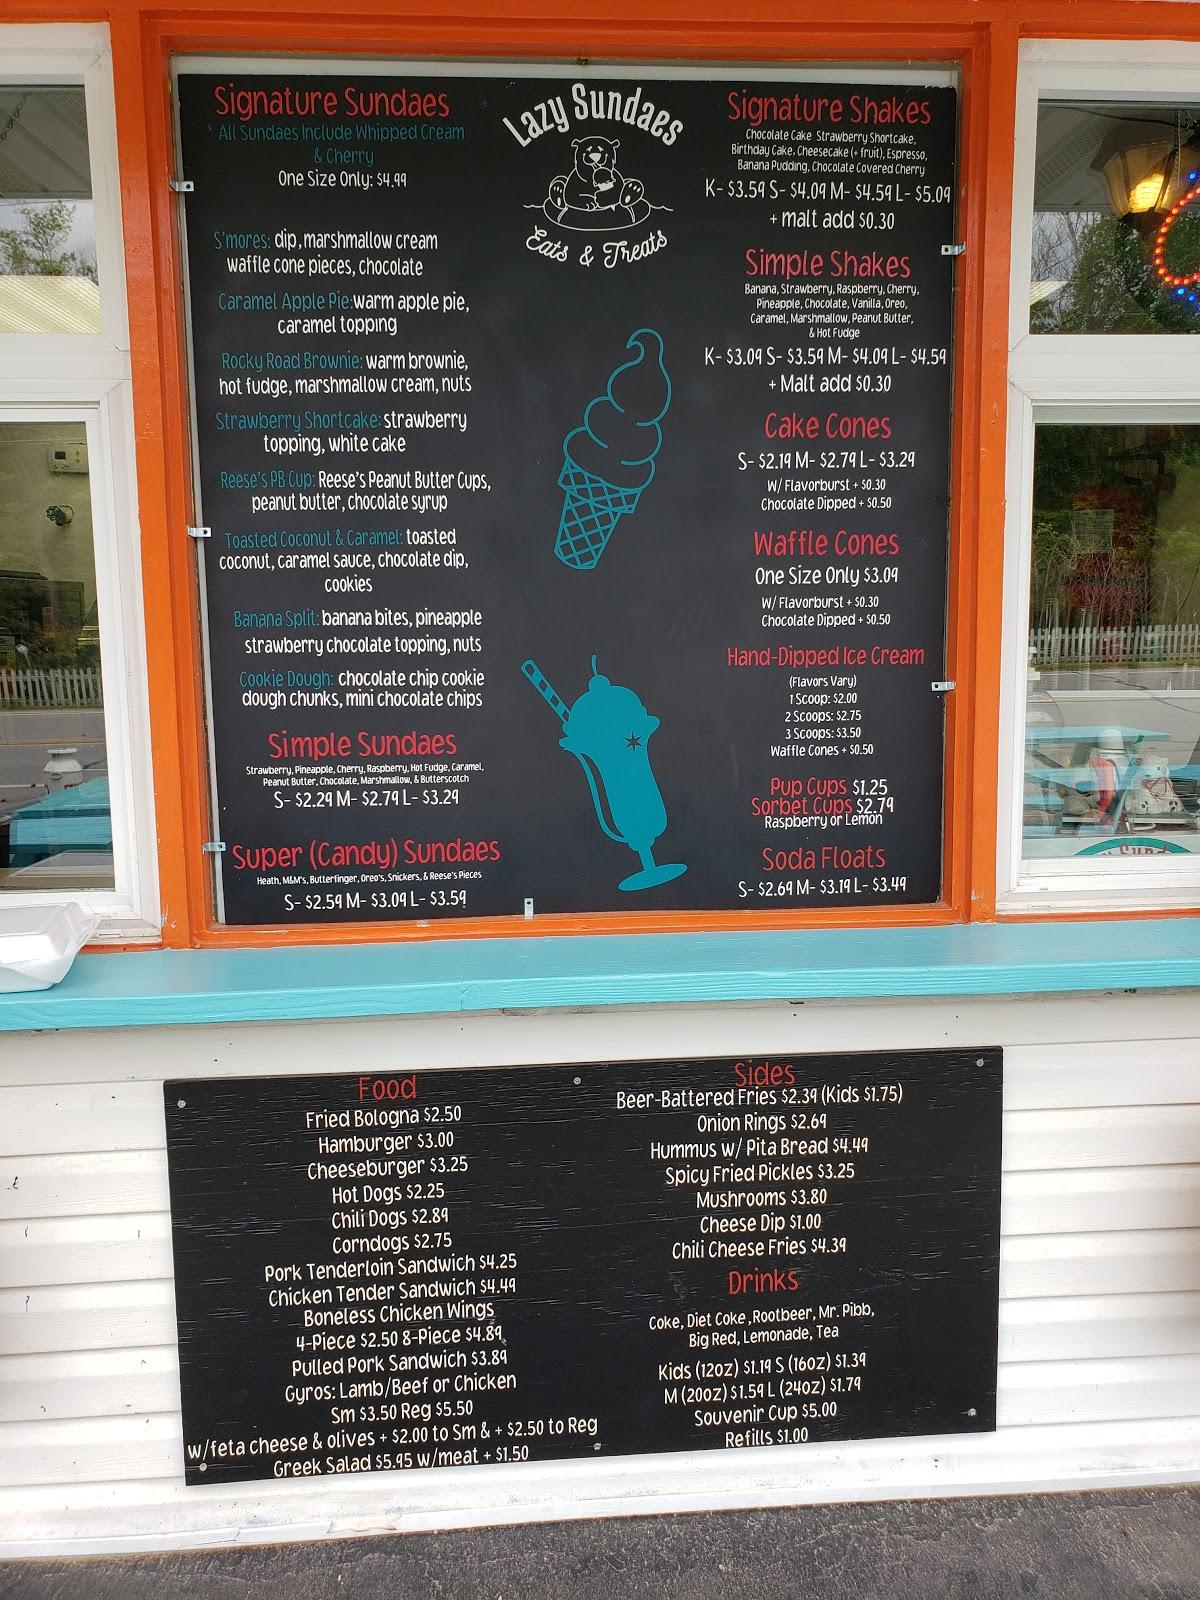 Lazy Sundaes
Eats & Treats
Signature Sundaes
* All Sundaes Include Whipped Cream
& Cherry
One Size Only: $4.99
S'mores: dip, marshmallow cream
waffle cone pieces, chocolate
Caramel Apple Pie: warm apple pie,
caramel topping
Rocky Road Brownie: warm brownie,
hot fudge, marshmallow cream, nuts
Strawberry Shortcake: strawberry
topping, white cake
Reese's PB Cup: Reese's Peanut Butter Cups,
peanut butter, chocolate syrup
Toasted Coconut & Caramel: toasted
coconut, caramel sauce, chocolate dip,
cookies
Banana Split: banana bites, pineapple
strawberry chocolate topping, nuts
Cookie Dough: chocolate chip cookie
dough chunks, mini chocolate chips
Simple Sundaes
Strawberry, Pineapple, Cherry, Raspberry, Hot Fudge, Caramel,
Peanut Butter, Chocolate, Marshmallow, & Butterscotch
S- $2.29 M- $2.79 L- $3.29
Super (Candy) Sundaes
Heath, M&M's, Butterfinger, Oreo's, Snickers, & Reese's Pieces
S- $2.59 M- $3.09 L- $3.59
Signature Shakes
Chocolate Cake Strawberry Shortcake,
Birthday Cake, Cheesecake (+ fruit), Espresso,
Banana Pudding, Chocolate Covered Cherry
K- $3.59 S- $4.09 M- $4.59 L- $5.09
+ malt add $0.30
Simple Shakes
Banana, Strawberry, Raspberry, Cherry,
Pineapple, Chocolate, Vanilla, Oreo,
Caramel, Marshmallow, Peanut Butter,
& Hot Fudge
K- $3.09 S- $3.59 M- $4.09 L- $4.59
+ Malt add $0.30
Cake Cones
S- $2.19 M- $2.79 L- $3.29
W/ Flavorburst + $0.30
Chocolate Dipped + $0.50
Waffle Cones
One Size Only $3.09
W/ Flavorburst + $0.30
Chocolate Dipped + $0.50
Hand-Dipped Ice Cream
(Flavors Vary)
1 Scoop: $2.00
2 Scoops: $2.75
3 Scoops: $3.50
Waffle Cones + $0.50
Pup Cups $1.25
Sorbet Cups $2.79
Raspberry or Lemon
Soda Floats
S- $2.69 M- $3.19 L- $3.49
Food
Fried Bologna $2.50
Hamburger $3.00
Cheeseburger $3.25
Hot Dogs $2.25
Chili Dogs $2.89
Corndogs $2.75
Pork Tenderloin Sandwich $4.25
Chicken Tender Sandwich $4.49
Boneless Chicken Wings
4-Piece $2.50 8-Piece $4.89
Pulled Pork Sandwich $3.89
Gyros: Lamb/Beef or Chicken
Sm $3.50 Reg $5.50
w/feta cheese & olives + $2.00 to Sm & + $2.50 to Reg
Greek Salad $5.95 w/meat + $1.50
Sides
Beer-Battered Fries $2.39 (Kids $1.75)
Onion Rings $2.69
Hummus w/ Pita Bread $4.49
Spicy Fried Pickles $3.25
Mushrooms $3.80
Cheese Dip $1.00
Chili Cheese Fries $4.39
Drinks
Coke, Diet Coke, Rootbeer, Mr. Pibb,
Big Red, Lemonade, Tea
Kids (12oz) $1.19 S (16oz) $1.39
M (20oz) $1.59 L (24oz) $1.79
Souvenir Cup $5.00
Refills $1.00